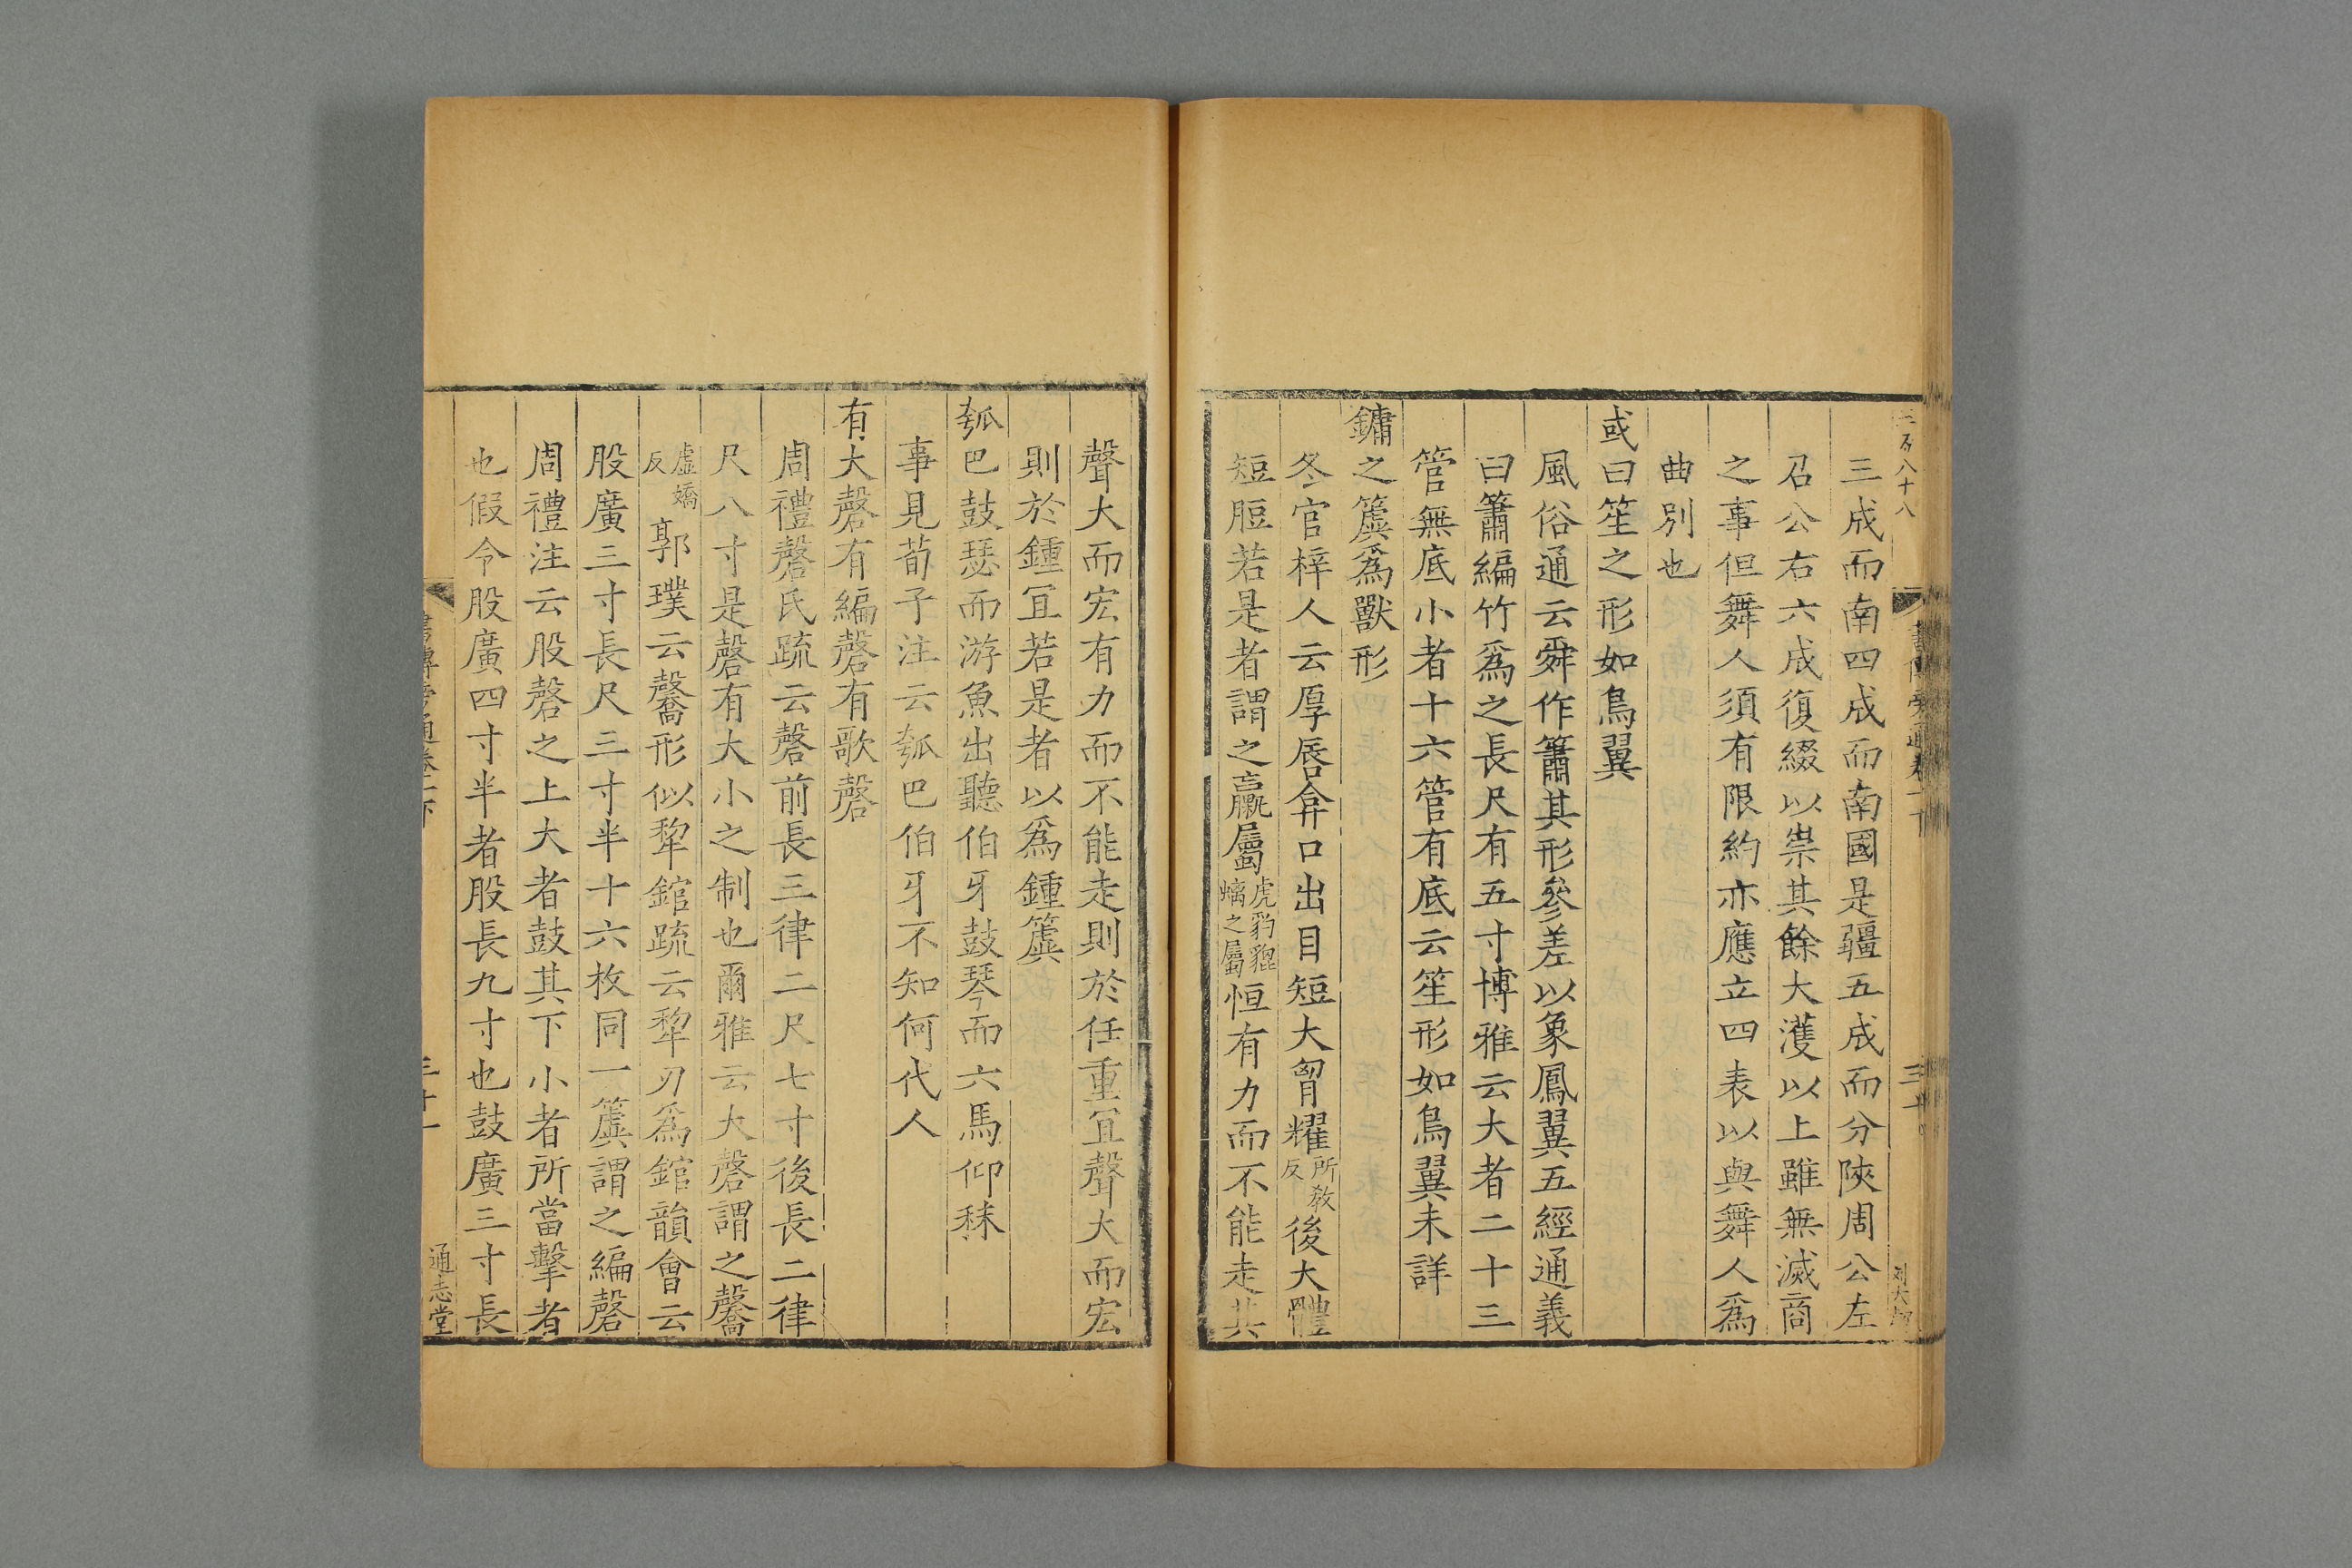 三百八十八
三成而南四成而南國是疆五成而分陝周公左
召公右六成復綴以崇其餘大濩以上雖無滅商
之事但舞人須有限約亦應立四表以與舞人爲
曲別也
或曰笙之形如鳥翼
風俗通云舜作簫其形參差以象鳳翼五經通義
曰簫編竹爲之長尺有五寸博雅云大者二十三
管無底小者十六管有底云笙形如鳥翼未詳
鏞之簴爲獸形
冬官梓人云厚唇弇口出目短大胷燿所教反後大體
短脰若是者謂之臝屬虎豹貔螭之屬恒有力而不能走其
聲大而宏有力而不能走則於任重宜聲大而宏
則於鍾宜若是者以爲鍾簴
瓠巴鼓瑟而游魚出聽伯牙鼓琴而六馬仰秣
事見荀子注云瓠巴伯牙不知何代人
有大磬有編磬有歌磬
周禮磬氏疏云磬前長三律二尺七寸後長二律
尺八寸是磬有大小之制也爾雅云大磬謂之毊
虛嬌反郭璞云毊形似犂錧疏云犂刃爲錧韻會云
股廣三寸長尺三寸半十六枚同一簴謂之編磬
周禮注云股磬之上大者鼓其下小者所當擊者
也假令股廣四寸半者股長九寸也鼓廣三寸長
書傳旁通卷一下
三十一
通志堂